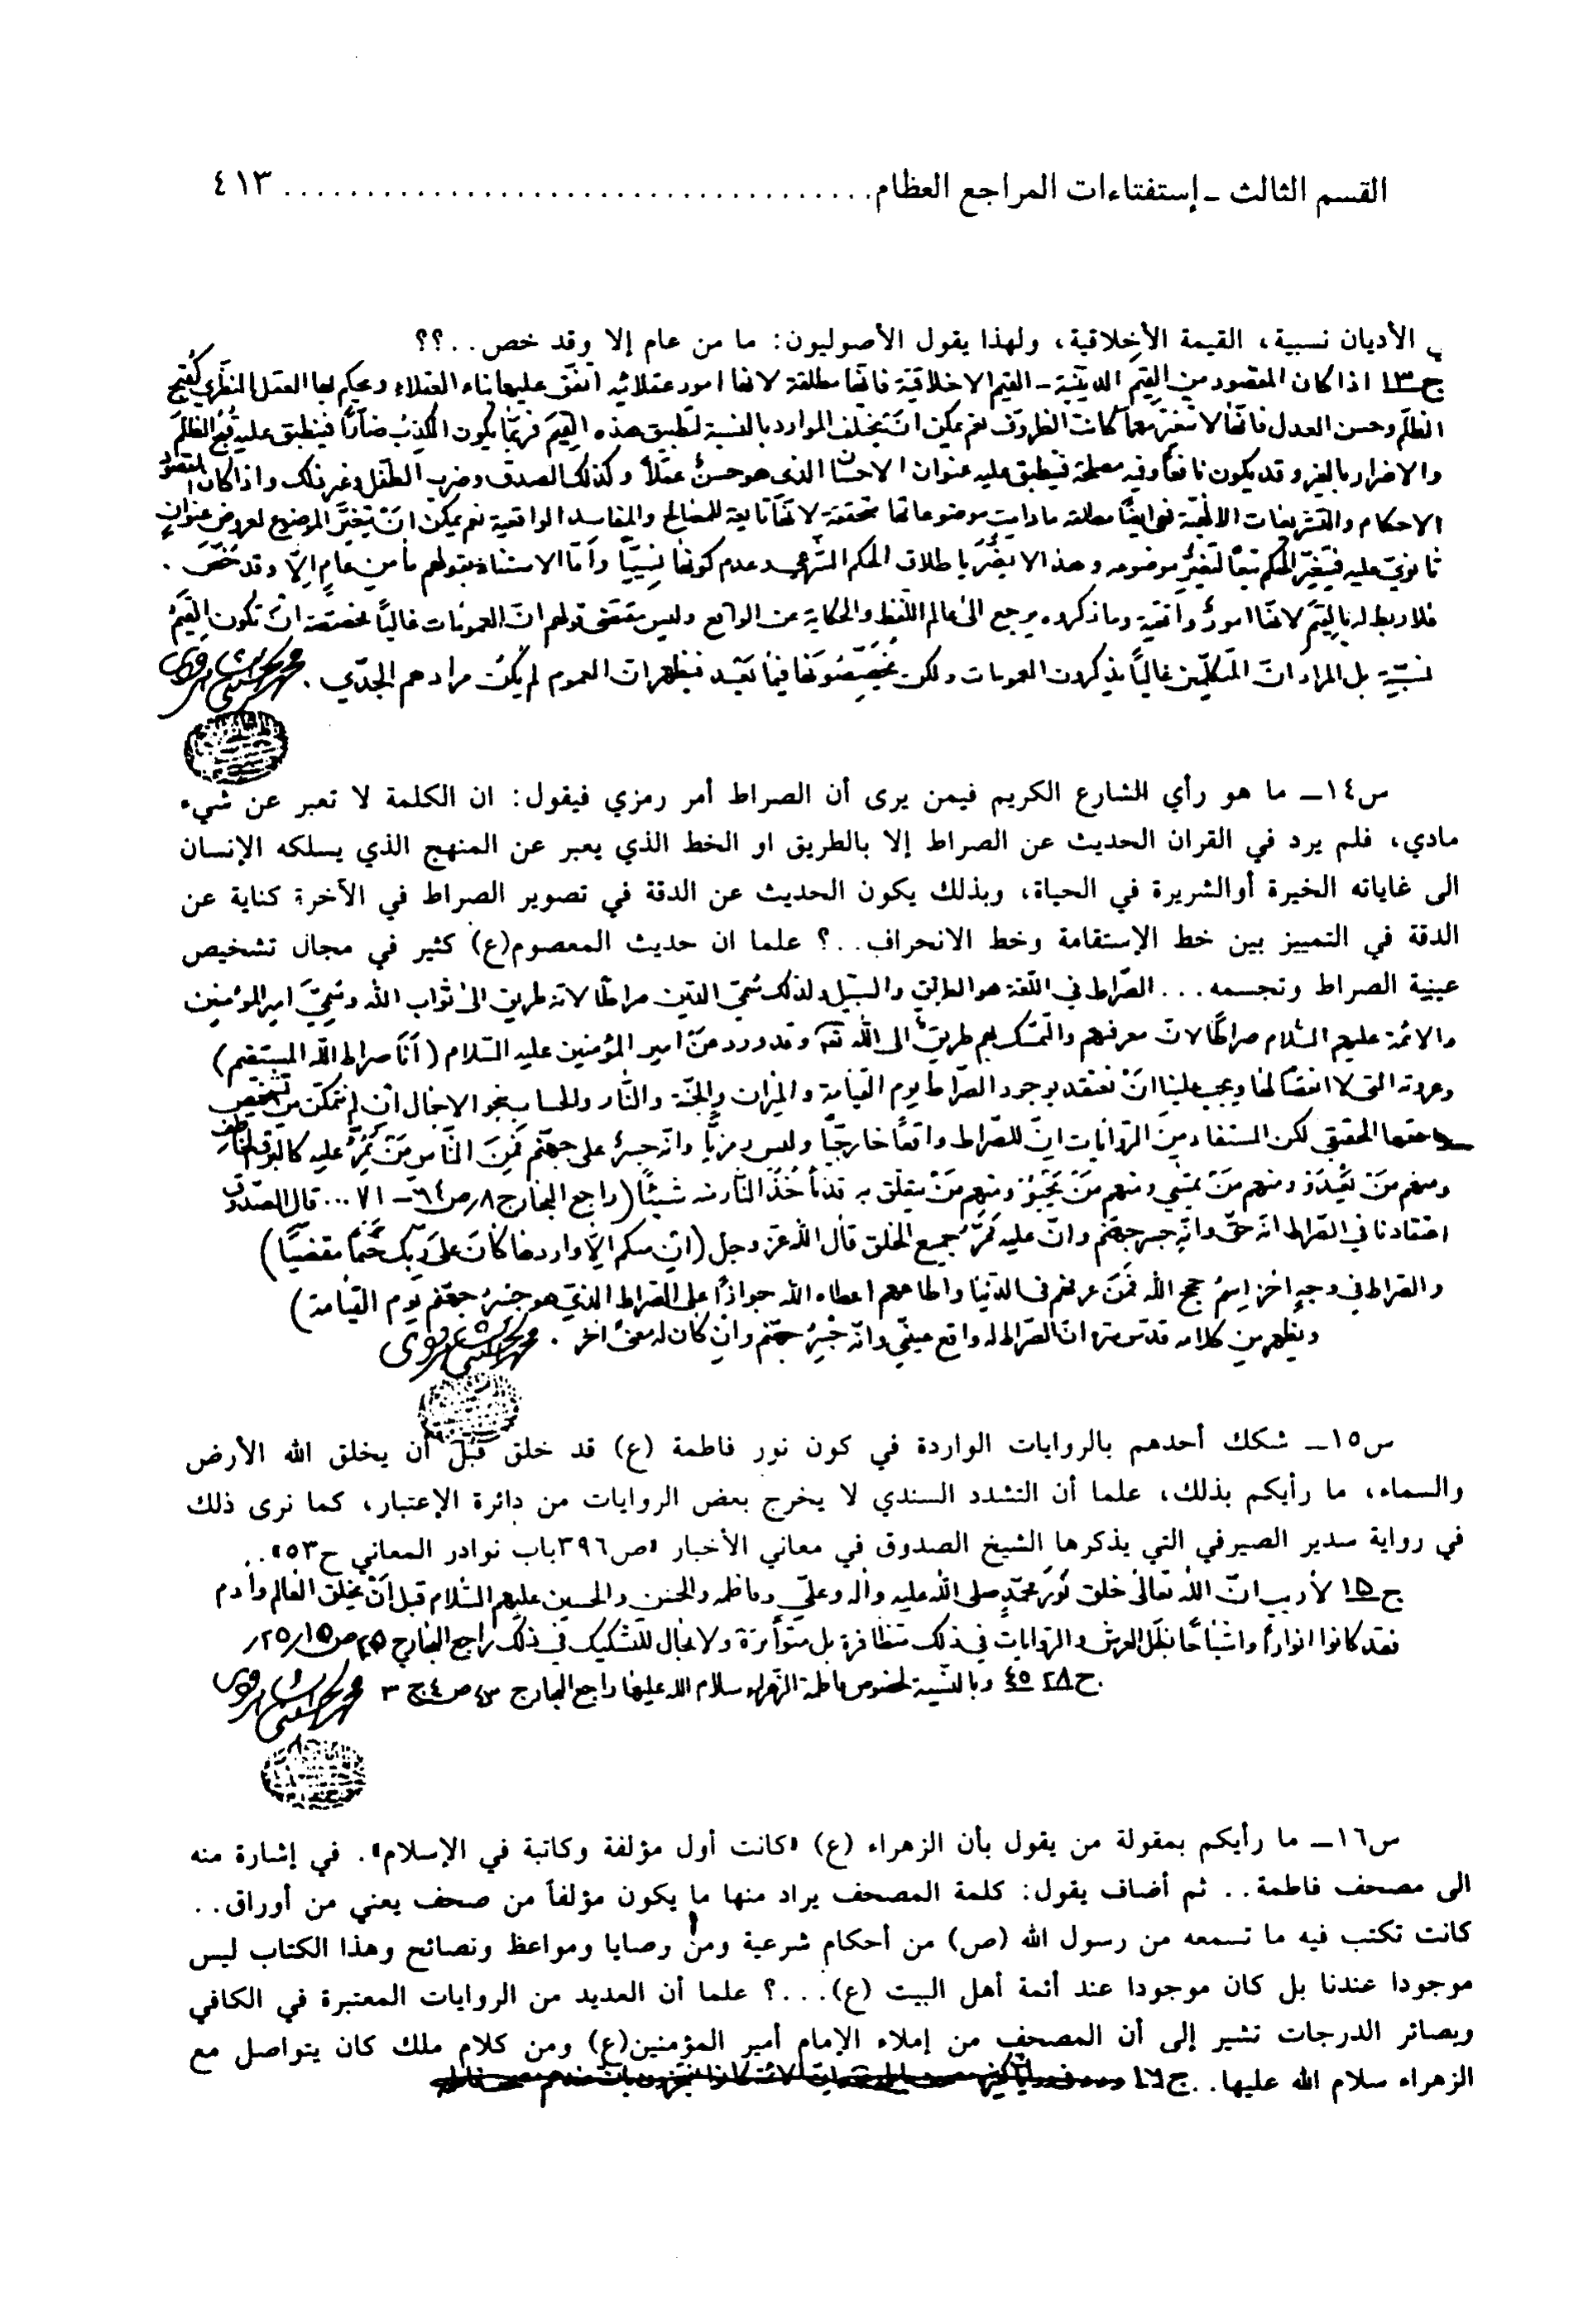 القسم الثالث ـ إستفتاءات المراجع العظام .................................... ٤١٣
الأديان نسبية، القيمة الأخلاقية، ولهذا يقول الأصوليون: ما من عام إلا وقد خص..؟؟
ج١٣ اذا كان المقصود من القِيَم الدينيّة - القيم الاخلاقيّة فانّها مطلقة لانها امور عقلائيه اتفق عليها بناء العقلاء ويحكم بها العقل النظري كقبح
الظلم وحسن العدل فانّها لا تتغيّر مهما كانت الظروف نعم يمكن انْ تختلف الموارد بالنسبة لتطبيق هذه القِيَم فربّما يكون الكذِبُ ضارّاً فينطبق عليه قُبْح الظلم
والاضرار بالغير وقد يكون نافعاً وفيه مصلحة فينطبق عليه عنوان الاحسان الذي هو حسنٌ عقلاً وكذلك الصدق وضرب الطفل وغير ذلك واذا كان المقصود
الاحكام والتشريعات الالهيّة فهي ايضاً مطلقة مادامت موضوعاتها محققة لانّها تابعة للمصالح والمفاسد الواقعية نعم يمكن انْ يتغيّر الموضوع لعروض عنوان
ثانويّ عليه فيتغيّر الحكم تبعاً لتغيّر موضوعه وهذا لا يضُرّ باطلاق الحكم الشرعي وعدم كونها نِسبيّاً وأمّا الاستشهاد بقولهم ما من عامٍ الّا وقد خُصَّ .
فلا ربط له بالقِيَم لانّها امورٌ واقعيّة وما ذكروه يرجع الى عالم اللّفظ والحكاية عن الواقع وليس مقتضى قولهم انّ العمومات غالباً مخصّصة انْ تكون القِيَمُ
نسبيّة بل المراد انّ المتكلّمين غالباً يذكرون العمومات ولكن يُخصِّصُونها فيما بَعْد فيظهر انّ العموم لم يكُن مرادهم الجدّي .
س١٤ـ ما هو رأي الشارع الكريم فيمن يرى أن الصراط أمر رمزي فيقول: ان الكلمة لا تعبر عن شيء
مادي، فلم يرد في القران الحديث عن الصراط إلا بالطريق او الخط الذي يعبر عن المنهج الذي يسلكه الإنسان
الى غاياته الخيرة أوالشريرة في الحياة، وبذلك يكون الحديث عن الدقة في تصوير الصراط في الآخرة كناية عن
الدقة في التمييز بين خط الإستقامة وخط الانحراف..؟ علما ان حديث المعصوم(ع) كثير في مجال تشخيص
عينية الصراط وتجسمه... الصّراط في اللّغة هو الطريق والسّبيل ولذلك سُمّيَ الدّين صراطاً لانّه طريق الىٰ ثواب الله وسُمِّيَ امير المؤمنين
والائمّة عليهم السّلام صراطاً لانّ معرفتهم والتمسّك بهم طريق الى الله وقد ورد عنْ امير المؤمنين عليه السّلام (أنَا صراط اللّه المستقيم)
وعروته التي لا انفصام لها ويجب علينا انْ نعتقد بوجود الصّراط يوم القيامة والميزان والجنّة والنّار والحساب بنحو الاجمال انْ لم نتمكّن من تشخيص
الحقيقي لكن المستفاد مِنَ الرّوايات انّ للصّراط واقعاً خارجيّاً وليس رمزيّاً وانّه جسرٌ على جهنّم فمِنَ النّاس مَنْ يَمُرُّ عليه كالبرق الخاطف
ومنهم مَنْ ومنهم مَنْ يمشي ومنهم مَنْ يَحْبُوْ ومنهم مَنْ يتعلّق به قد تأخُذُ النّار منه شيئاً (راجع البحار ج٨ ص٦٤ ـ ٧١ ... قال الصّدوق
اعتقادنا في الصّراط انّه حقّ وانّه جسر جهنّم وانّ عليه مَمَرُّ جميع الخلق قال الله عزّ وجل (وانْ منكم الاّ واردها كانَ علىٰ ربّك حَتْماً مقضيّاً)
والصّراط في وجهٍ اخر اِسمُ حجج الله فمَنْ عرفهم في الدّنيا واطاعهم اعطاه الله جوازاً على الصّراط الذي هو جسرُ جهنّم يوم القيامة)
ويظهر من كلامه قدّس سرّه انّ الصّراط له واقع عينيّ وانّه جِسْرُ جهنّم وانْ كان له معنىً اخر .
س١٥ـ شكك أحدهم بالروايات الواردة في كون نور فاطمة (ع) قد خلق قبل أن يخلق الله الأرض
والسماء، ما رأيكم بذلك، علما أن التشدد السندي لا يخرج بعض الروايات من دائرة الإعتبار، كما نرى ذلك
في رواية سدير الصيرفي التي يذكرها الشيخ الصدوق في معاني الأخبار «ص٣٩٦باب نوادر المعاني ح٥٣»..
ج١٥ لا ريب انّ اللّه تعالىٰ خلق نُورَ محمّدٍ صلى اللّه عليه وآله وعليّ وفاطمه والحسن والحسين عليهم السّلام قبل انْ يخلق العالم وآدم
فقد كانوا انواراً واشباحاً بظلّ العرش والرّوايات في ذلك متظافرة بل متواترة ولا مجال للتشكيك في ذلك راجع البحار ج٢٥ ص١٥ / ٢٥
ح٢٨ ٤٥ وبالنّسبة لخصوص فاطمة الزّهراء سلام الله عليها راجع البحار ج ٤٣ ص٤ ح ٣
س١٦ـ ما رأيكم بمقولة من يقول بأن الزهراء (ع) «كانت أول مؤلفة وكاتبة في الإسلام». في إشارة منه
الى مصحف فاطمة.. ثم أضاف يقول: كلمة المصحف يراد منها ما يكون مؤلفاً من صحف يعني من أوراق..
كانت تكتب فيه ما تسمعه من رسول الله (ص) من أحكام شرعية ومن وصايا ومواعظ ونصائح وهذا الكتاب ليس
موجودا عندنا بل كان موجودا عند أئمة أهل البيت (ع)...؟ علما أن العديد من الروايات المعتبرة في الكافي
وبصائر الدرجات تشير إلى أن المصحف من إملاء الإمام أمير المؤمنين(ع) ومن كلام ملك كان يتواصل مع
الزهراء سلام الله عليها.. ج١٦